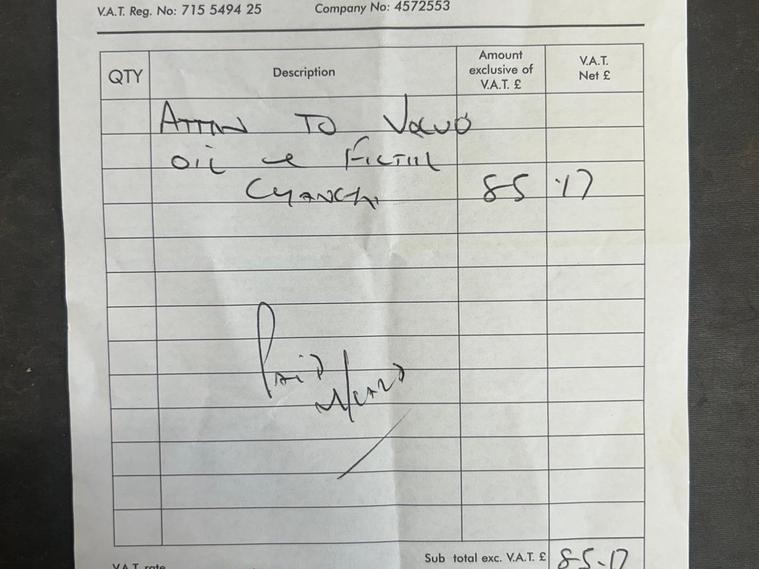 V.A.T. Reg. No: 715 5494 25 Company No: 4572553
QTY Description Amount exclusive of V.A.T. £ V.A.T. Net £
To Volvo
oil & Filter
85 .17
Paid
Sub total exc. V.A.T. £ 85-17
V.A.T. rate